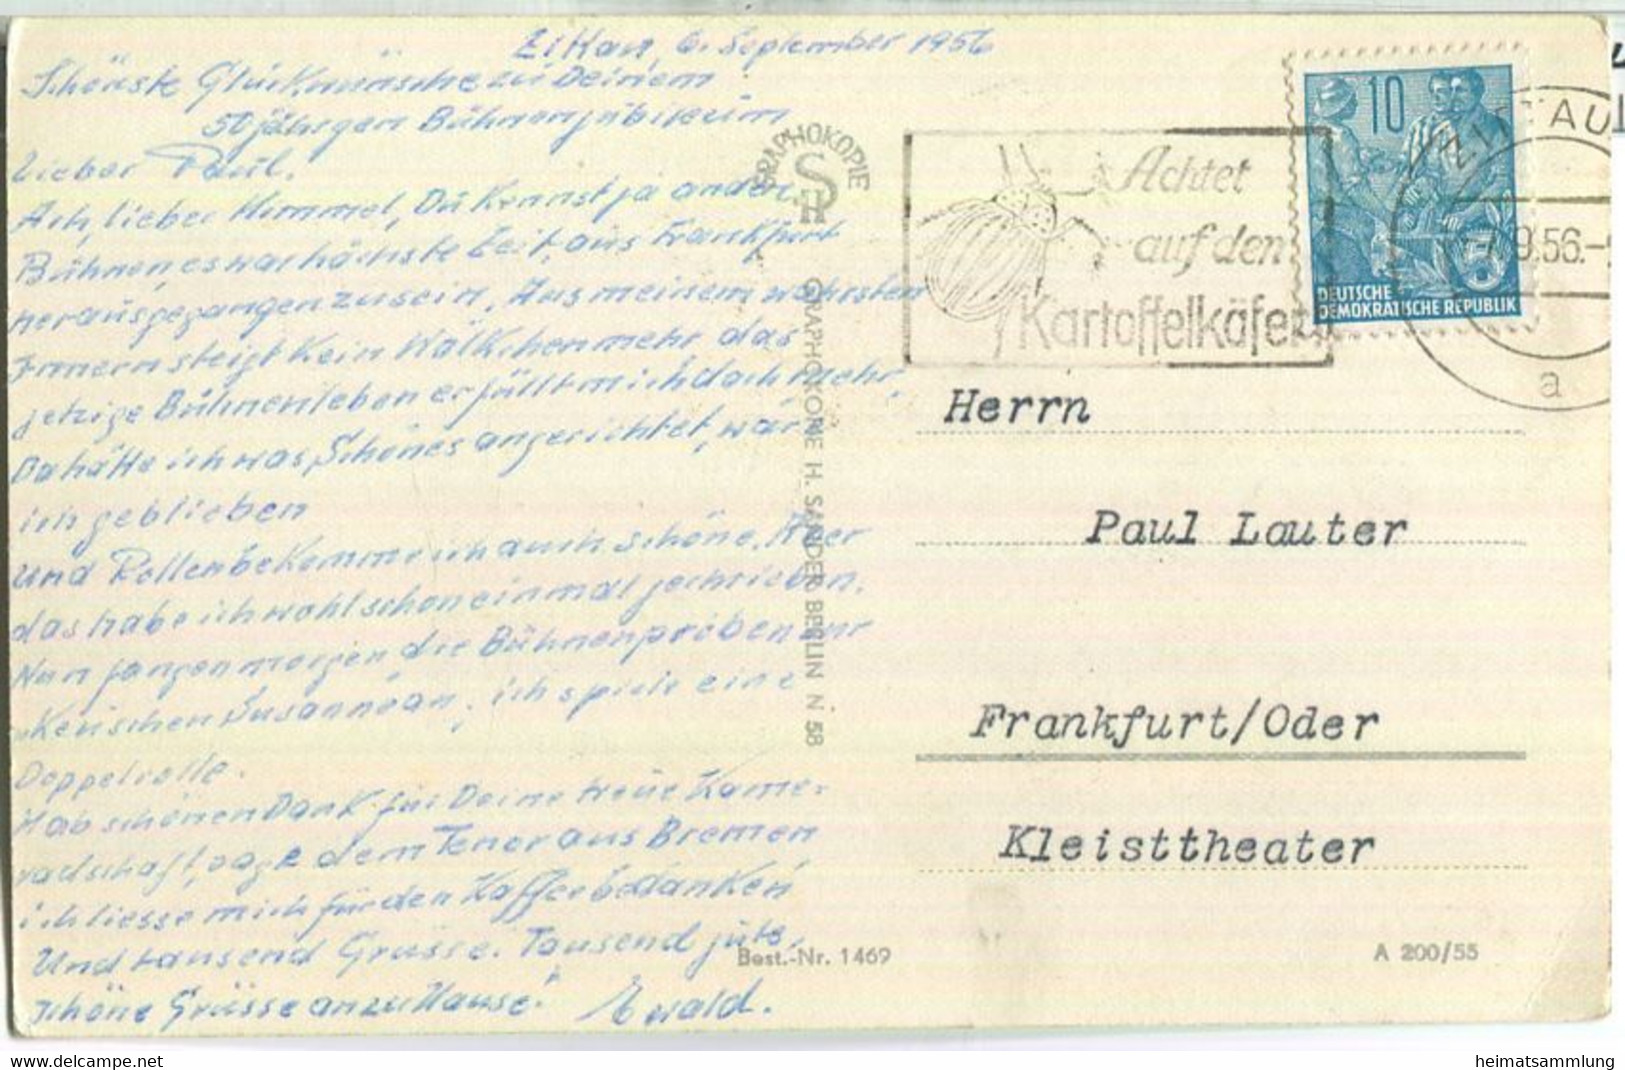 Zittau, 6. September 1956
Schönste Glückwünsche zu Deinem
50jährgen Bühnenjubiläum
Lieber Paul.
Ach, lieber Himmel, Du kennst ja andere
Bühnen, es war höchste Zeit, aus Frankfurt
herausgegangen zu sein. Aus meinem wahrsten
Innern steigt kein Wölkchen mehr, das
jetzige Bühnenleben erfüllt mich doch mehr,
Da hätte ich was Schönes angerichtet, wär
ich geblieben
Und Rollen bekomme ich auch schöne. Aber
das habe ich wohl schon einmal geschrieben.
Nun fangen morgen die Bühnenproben zur
"Keuschen Susanne" an, ich spiele eine
Doppelrolle.
Hab schönen Dank für Deine treue Kame-
radschaft, sage dem Tenor aus Bremen
ich liesse mich für den Kaffee bedanken
Und tausend Grüsse. Tausend gute,
schöne Grüsse an zu Hause! Ewald.
GRAPHOKOPIE
SH
GRAPHOKOPIE H. SANDER, BERLIN N 58
Best.-Nr. 1469
Achtet
auf den
Kartoffelkäfer
10
DEUTSCHE
DEMOKRATISCHE REPUBLIK
ZITTAU
9.56.-
a
Herrn
Paul Lauter
Frankfurt/Oder
Kleisttheater
A 200/55
www.delcampe.net
heimatsammlung